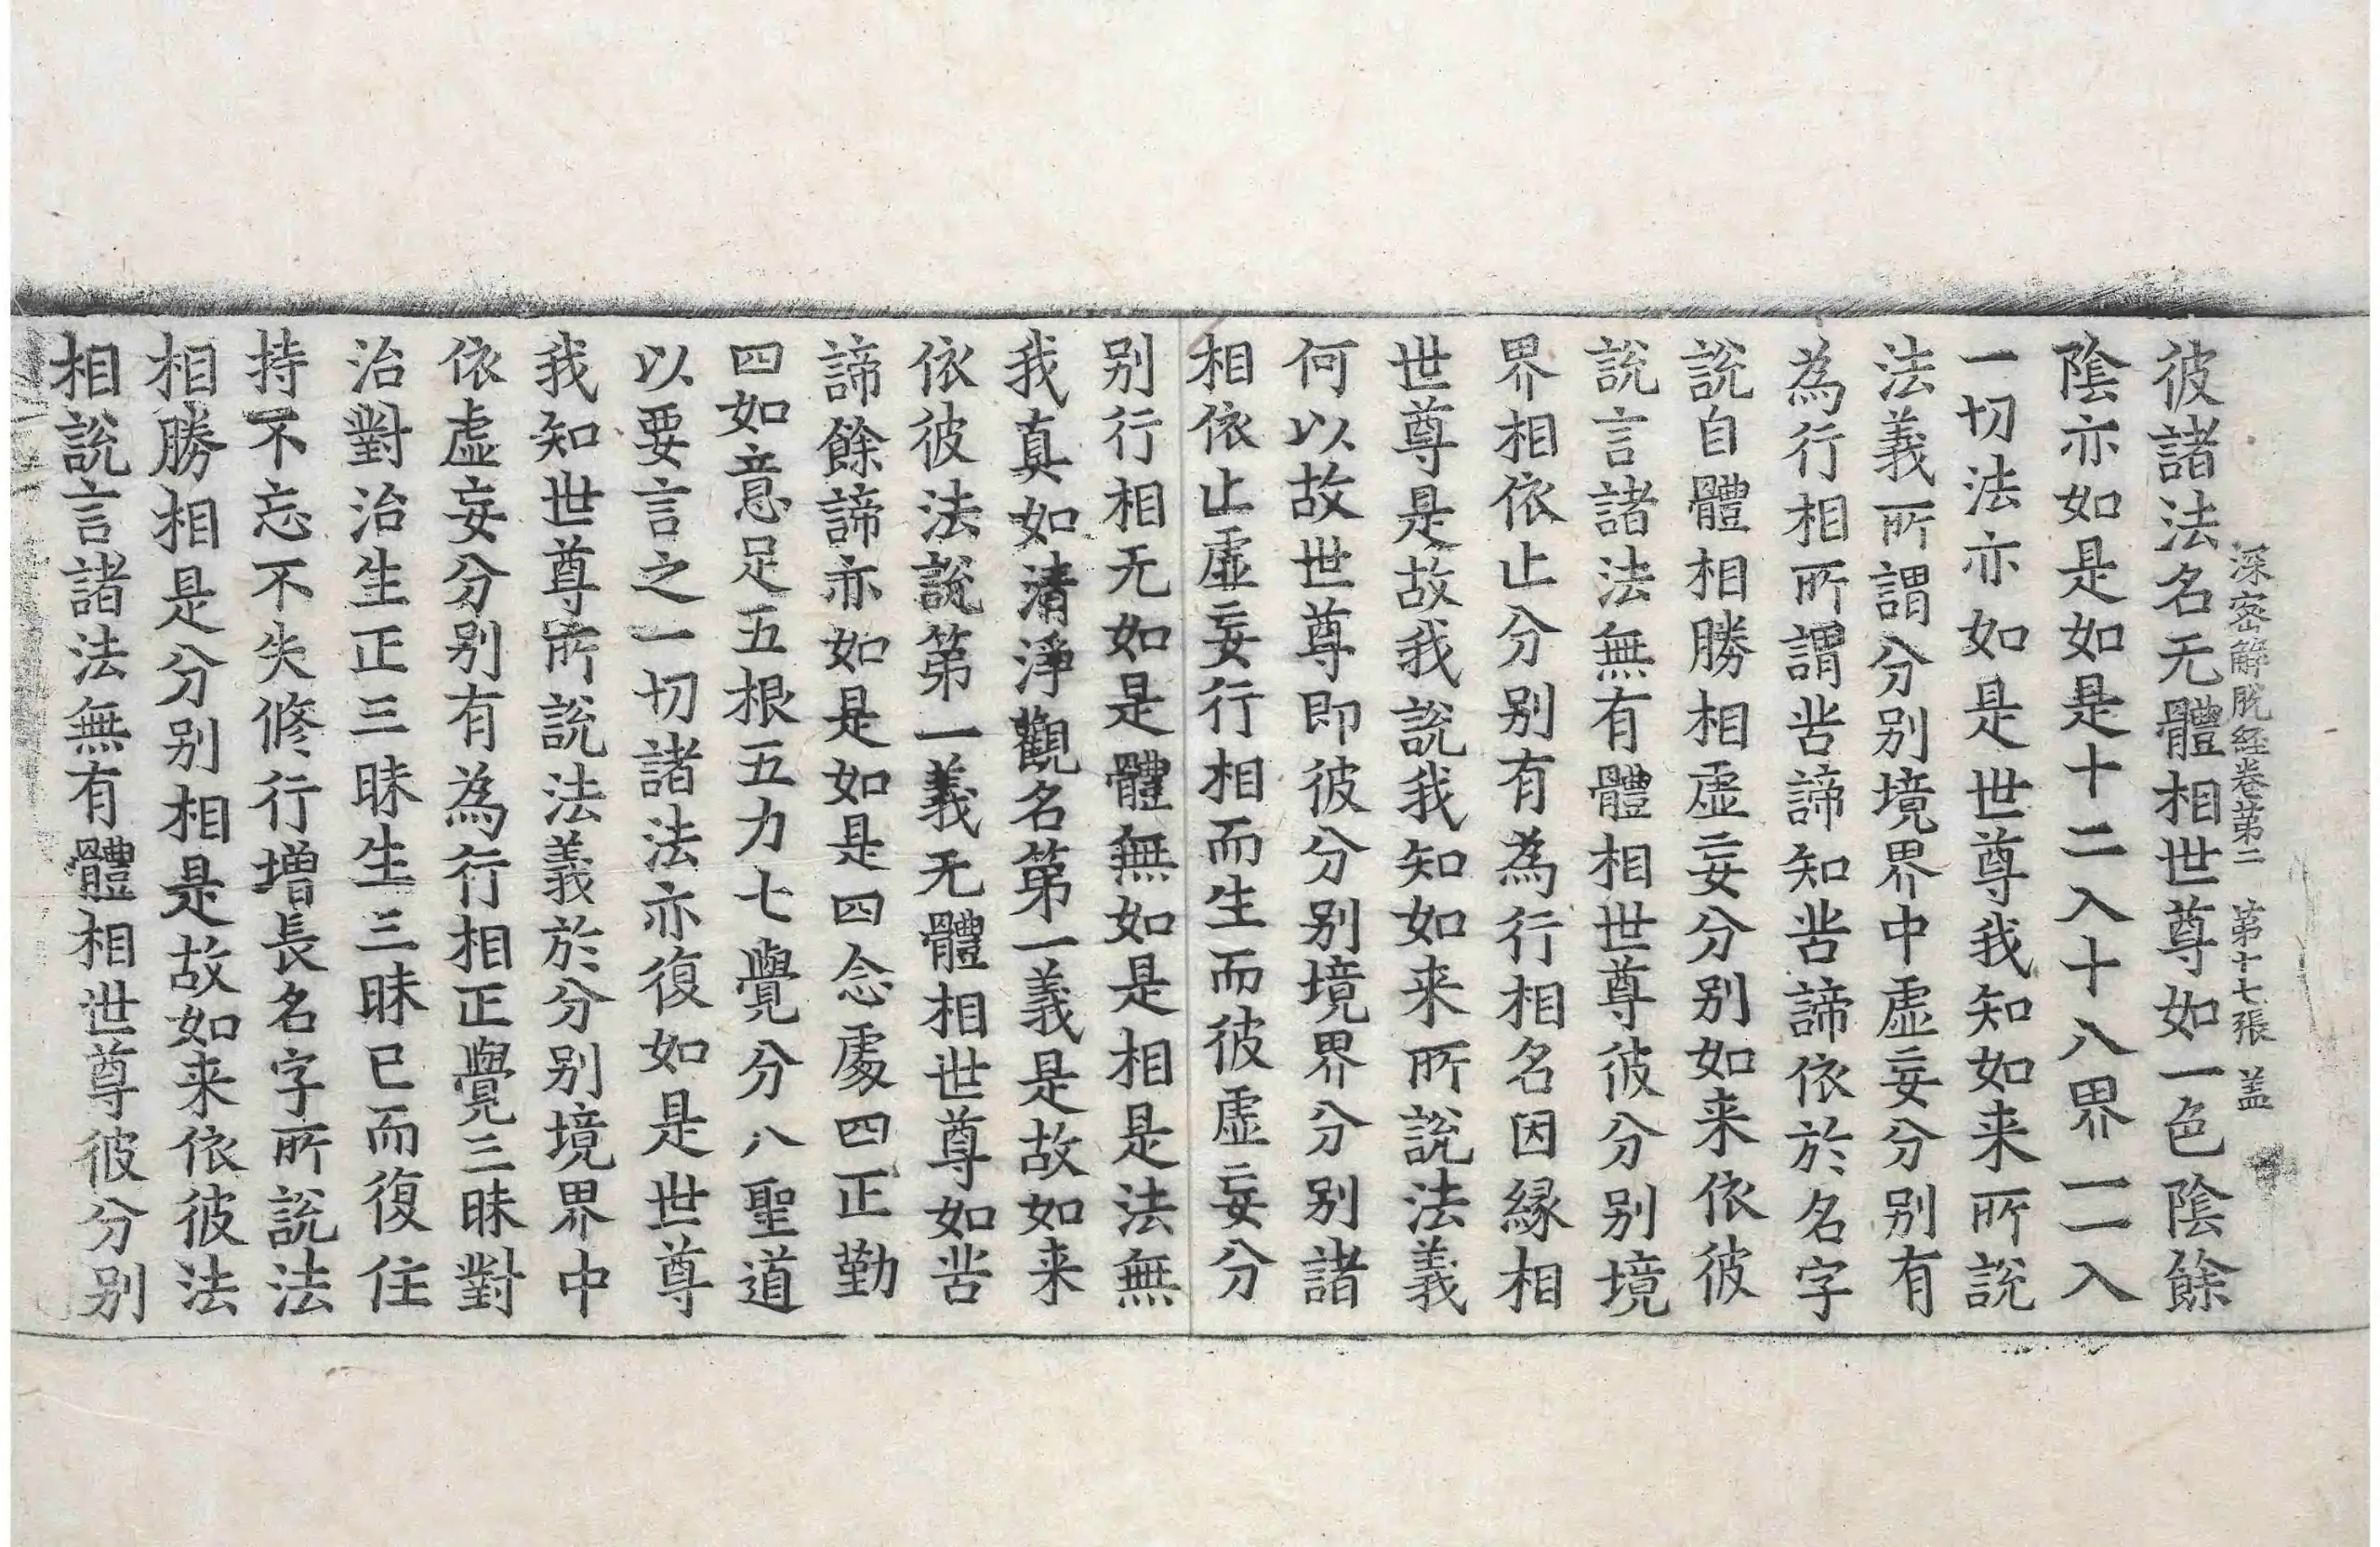 深密解脫経卷第二 第十七張 盖
彼諸法名无體相世尊如一色陰餘
陰亦如是如是十二入十八界一一入
一切法亦如是世尊我知如来所說
法義所謂分别境界中虛妄分别有
為行相所謂苦諦知苦諦依於名字
說自體相勝相虛妄分别如来依彼
說言諸法無有體相世尊彼分别境
界相依止分别有為行相名因縁相
世尊是故我說我知如来所說法義
何以故世尊即彼分别境界分别諸
相依止虛妄行相而生而彼虛妄分
别行相无如是體無如是相是法無
我真如清淨觀名第一義是故如来
依彼法說第一義无體相世尊如苦
諦餘諦亦如是如是四念處四正勤
四如意足五根五力七覺分八聖道
以要言之一切諸法亦復如是世尊
我知世尊所說法義於分别境界中
依虛妄分别有為行相正覺三昧對
治對治生正三昧生三昧已而復住
持不忘不失修行増長名字所說法
相勝相是分别相是故如来依彼法
相說言諸法無有體相世尊彼分别